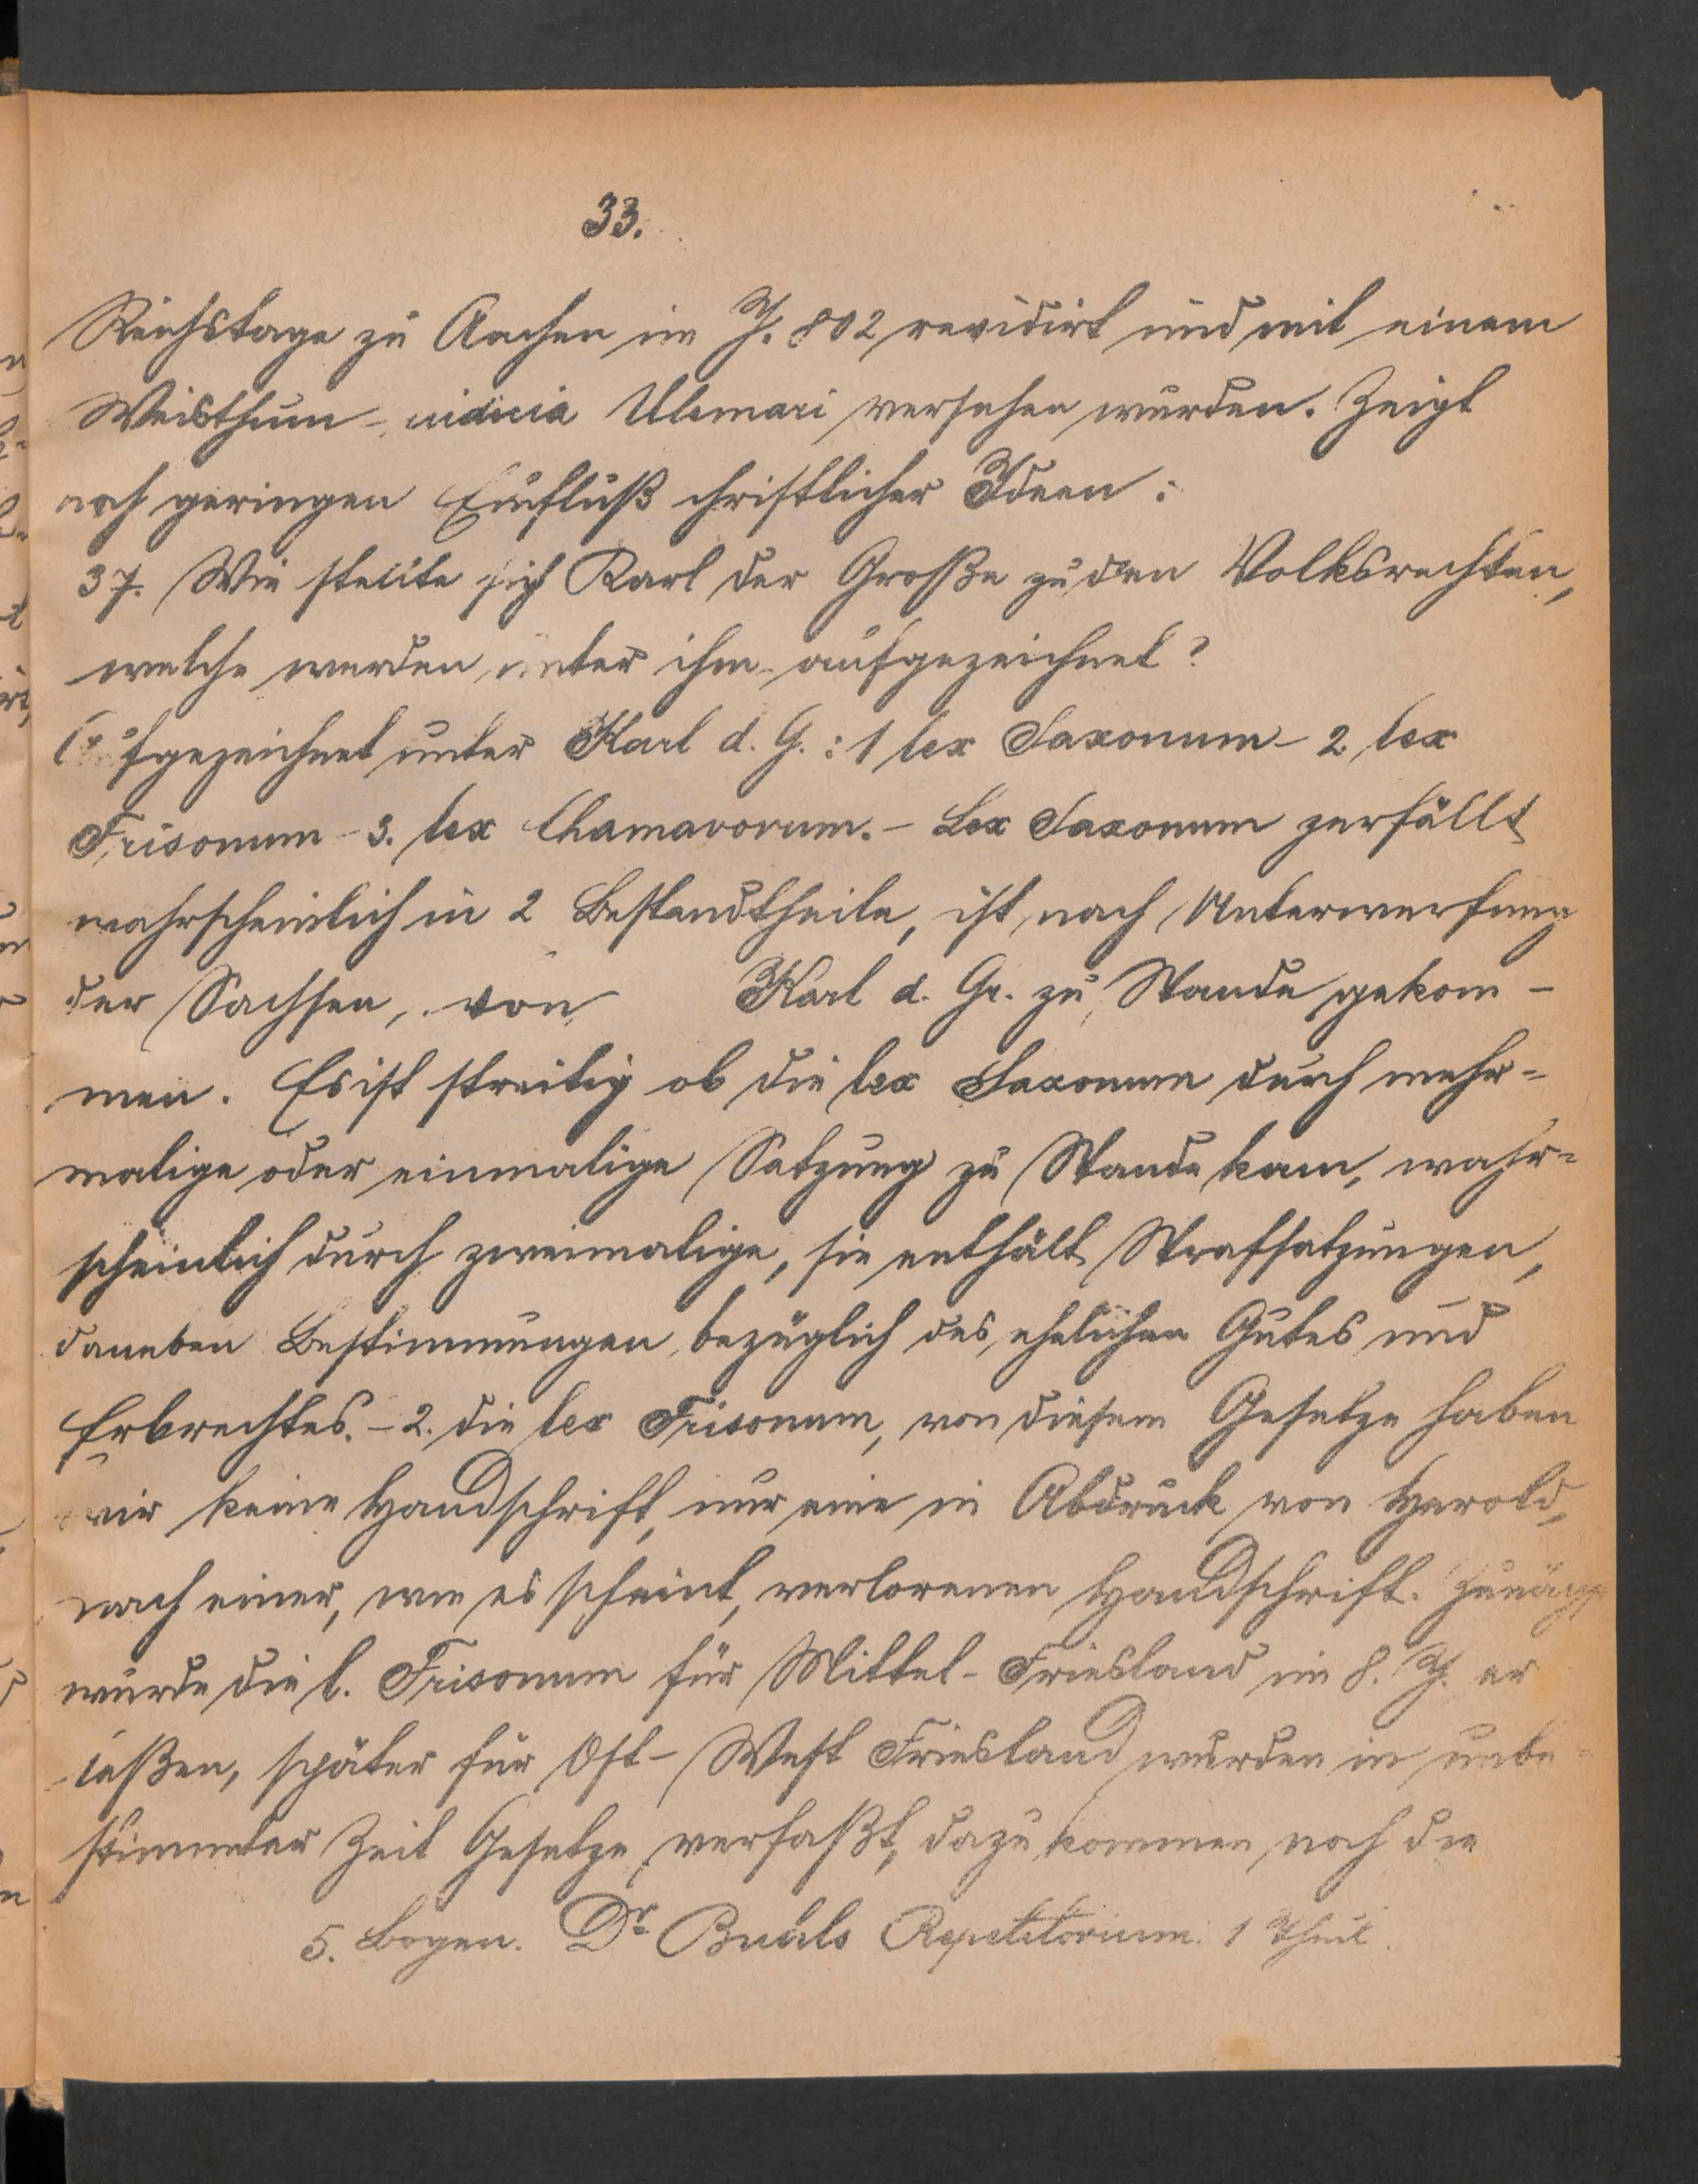 33.
Reichstage zu Aachen im J. 802 revidirt und mit einem
Weisthum - iudicia Ulemari versehen wurden. Zeigt
noch geringen Einfluß christlicher Ideen.
37. Wie stellte sich Karl der Große zu den Volksrechten,
welche wurden unter ihm aufgezeichnet?
Aufgezeichnet unter Karl d. G.: 1 lex Saxonum - 2 lex
Frisonum - 3. lex Chamavorum. - Lex Saxonum zerfällt
wahrscheinlich in 2 Bestandtheile, ist, nach Unterwerfung
der Sachsen, von Karl d. Gr. zu Stande gekom-
men. Es ist streitig ob die lex Saxonum durch mehr-
malige oder einmalige Satzung zu Stande kam, wahr-
scheinlich durch zweimalige, sie enthält Strafsatzungen,
daneben Bestimmungen bezüglich des ehelichen Gutes und
Erbrechtes. - 2. die lex Frisonum, von diesem Gesetze haben
wir keine Handschrift, nur eine in Abdruck von Herold,
nach einer, wie es scheint, verlorenen Handschrift.
wurde die l. Frisonum für Mittel-Friesland im 8. J. er
laßen, später für Ost- West Friesland wurden in unbe-
stimmter Zeit Gesetze verfaßt, dazu kommen noch die
5. Bogen. Dr Repetitorium. 1 Theil.